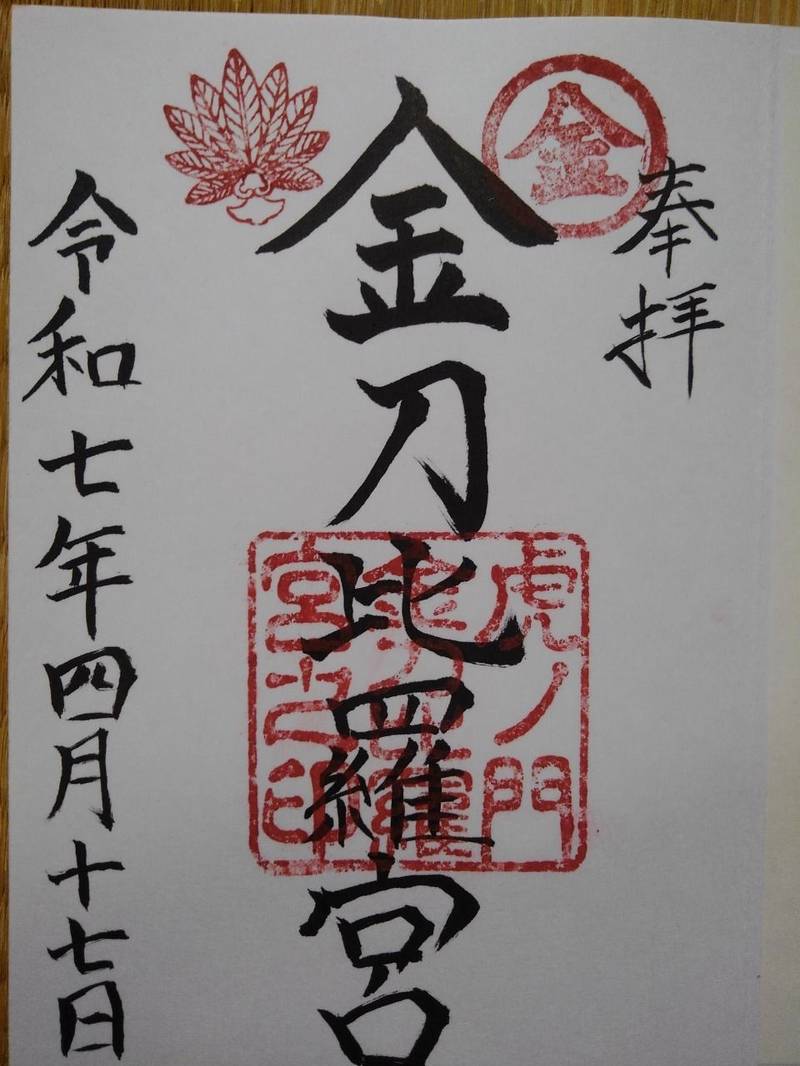 奉拝
金
金刀比羅宮
虎ノ門
金刀比羅
宮之印
令和七年四月十七日